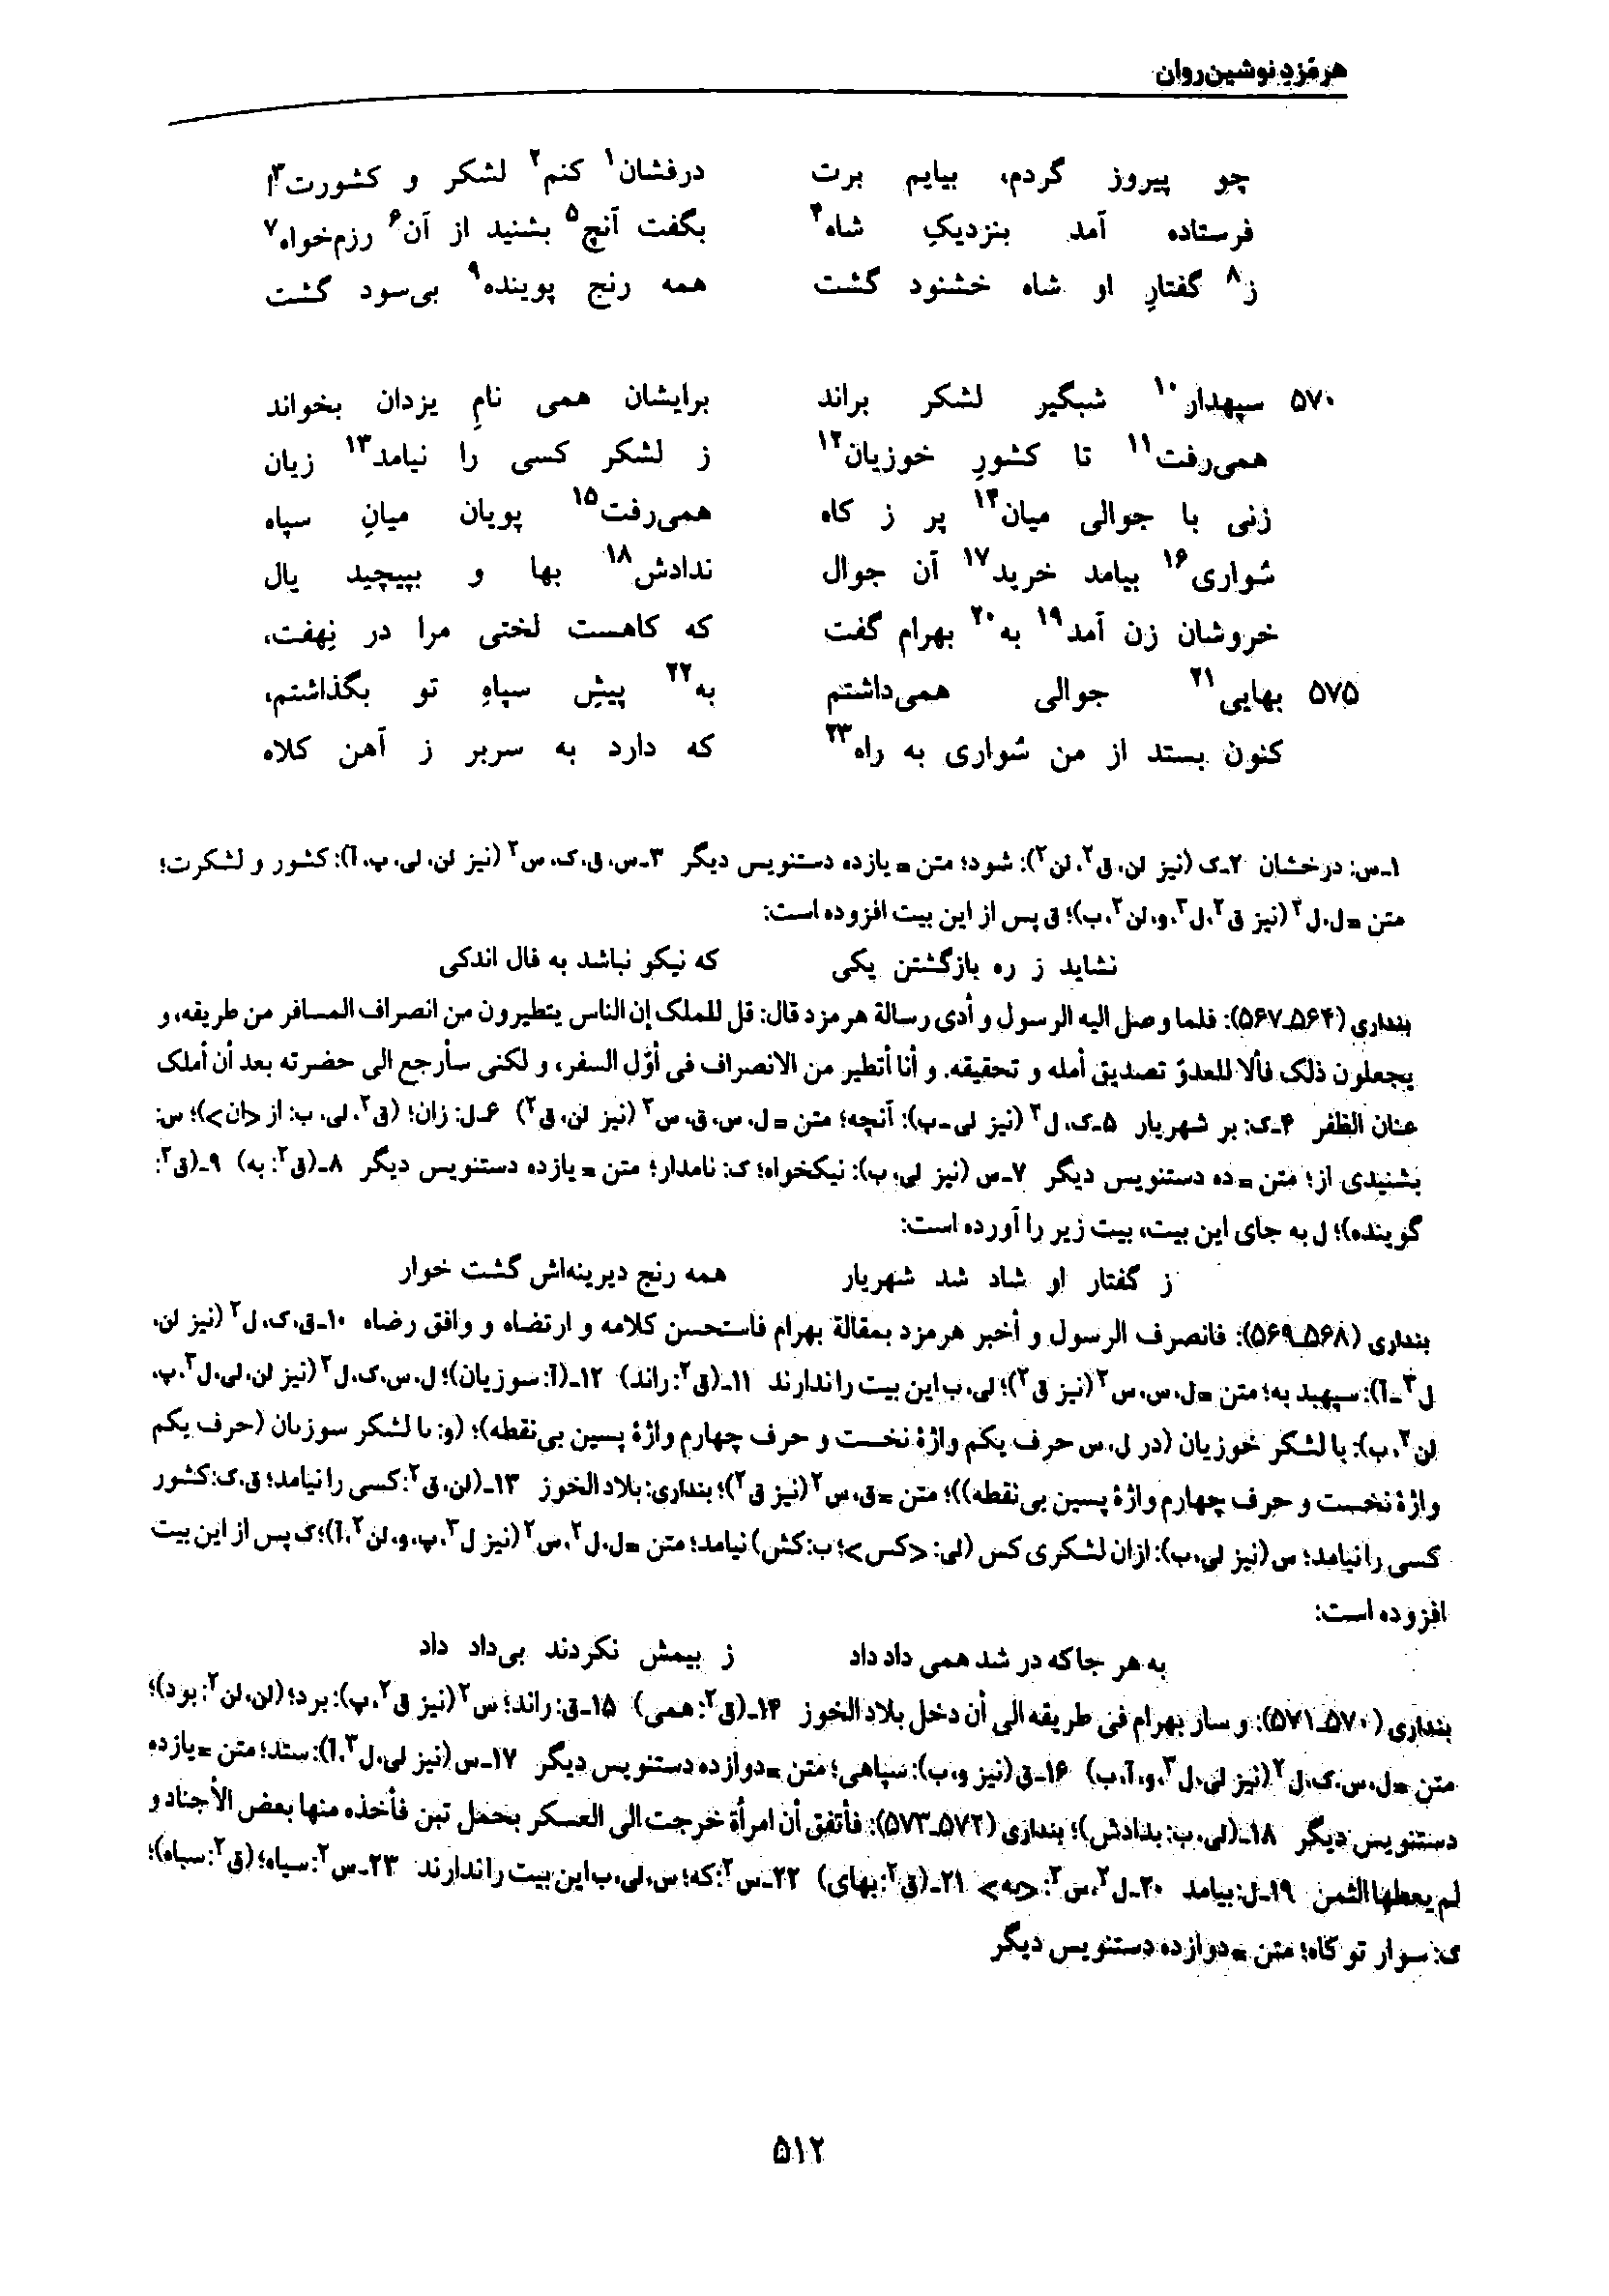 هرمزد نوشین‌روان
چو پیروز گردم، بیایم برت درفشان۱ کنم۲ لشکر و کشورت۳!
فرستاده آمد بنزدیکِ شاه۴ بگفت آنچ۵ بشنید از آن۶ رزم‌خواه۷
ز۸ گفتارِ او شاه خشنود گشت همه رنج پوینده۹ بی‌سود گشت
۵۷۰ سپهدار۱۰ شبگیر لشکر براند برایشان همی نامِ یزدان بخواند
همی‌رفت۱۱ تا کشورِ خوزیان۱۲ ز لشکر کسی را نیامد۱۳ زیان
زنی با جوالی میان۱۴ پر ز کاه همی‌رفت۱۵ پویان میانِ سپاه
سُواری۱۶ بیامد خرید۱۷ آن جوال ندادش۱۸ بها و بپیچید یال
خروشان زن آمد۱۹ به۲۰ بهرام گفت که کاهست لختی مرا در نِهفت،
۵۷۵ بهایی۲۱ جوالی همی‌داشتم به۲۲ پیشِ سپاهِ تو بگذاشتم،
کنون بستد از من سُواری به راه۲۳ که دارد به سربر ز آهن کلاه
۱ـ س: درخشان ۲ـ ک (نیز لن، ق۲، لن۲): شود؛ متن = یازده دستنویس دیگر ۳ـ س، ق، ک، س۲ (نیز لن، لی، پ، آ): کشور و لشکرت؛
متن = ل، ل۲ (نیز ق۲، ل۳، و، لن۲، ب)؛ ق پس از این بیت افزوده است:
نشاید ز ره بازگشتن یکی که نیکو نباشد به فال اندکی
بنداری (۵۶۴ـ۵۶۷): فلما وصل الیه الرسول و أدی رسالة هرمزد قال: قل للملک إن الناس یتطیرون من انصراف المسافر من طریقه، و
یجعلون ذلک فألا للعدوّ تصدیق أمله و تحقیقه. و أنا أتطیر من الانصراف فی أوّل السفر، و لکنی سأرجع الی حضرته بعد أن أملک
عنان الظفر ۴ـ ک: بر شهریار ۵ـ ک، ل۲ (نیز لی ـ ب): آنچه؛ متن = ل، س، ق، س۲ (نیز لن، ق۲) ۶ـ ل: زان؛ (ق۲، لی، ب: از <ان>)؛ س:
بشنیدی از؛ متن = ده دستنویس دیگر ۷ـ س (نیز لی، ب): نیکخواه؛ ک: نامدار؛ متن = یازده دستنویس دیگر ۸ـ (ق۲: به) ۹ـ (ق۲:
گوینده)؛ ل به جای این بیت، بیت زیر را آورده است:
ز گفتار او شاد شد شهریار همه رنج دیرینه‌اش گشت خوار
بنداری (۵۶۸ـ۵۶۹): فانصرف الرسول و أخبر هرمزد بمقالة بهرام فاستحسن کلامه و ارتضاه و وافق رضاه ۱۰ـ ق، ک، ل۲ (نیز لن،
ل۳ ـ آ): سپهبد به؛ متن = ل، س، س۲ (نیز ق۲)؛ لی، ب این بیت را ندارند ۱۱ـ (ق۲: راند) ۱۲ـ (آ: سوزیان)؛ ل، س، ک، ل۲ (نیز لن، لی، ل۳، پ،
لن۲، ب): با لشکر خوزیان (در ل، س حرف یکم واژهٔ نخست و حرف چهارم واژهٔ پسین بی‌نقطه)؛ (و: ىا لشکر سوزىان (حرف یکم
واژهٔ نخست و حرف چهارم واژهٔ پسین بی‌نقطه))؛ متن = ق، س۲ (نیز ق۲)؛ بنداری: بلاد الخوز ۱۳ـ (لن، ق۲: کسی را نیامد؛ ق، ک: کشور
کسی را نیامد؛ س (نیز لی، ب): ازان لشکری کس (لی: <کس>؛ ب: کش) نیامد؛ متن = ل، ل۲، س۲ (نیز ل۳، پ، و، لن۲، آ)؛ ک پس از این بیت
افزوده است:
به هر جا که در شد همی داد داد ز بیمش نکردند بی‌داد داد
بنداری (۵۷۰ـ۵۷۱): و سار بهرام فی طریقه الی أن دخل بلاد الخوز ۱۴ـ (ق۲: همی) ۱۵ـ ق: راند؛ س۲ (نیز ق۲، پ): برد؛ (لن، لن۲: بود)؛
متن = ل، س، ک، ل۲ (نیز لی، ل۳، و، آ، ب) ۱۶ـ ق (نیز و، ب): سپاهی؛ متن = دوازده دستنویس دیگر ۱۷ـ س (نیز لی، ل۳، آ): ستد؛ متن = یازده
دستنویس دیگر ۱۸ـ (لی، ب: بدادش)؛ بنداری (۵۷۲ـ۵۷۳): فأتفق أن امرأة خرجت الی العسکر بحمل تبن فأخذه منها بعض الأجناد و
لم یعطها الثمن ۱۹ـ ل: بیامد ۲۰ـ ل۲، س۲: <به> ۲۱ـ (ق۲: بهای) ۲۲ـ س۲: که؛ س، لی، ب این بیت را ندارند ۲۳ـ س۲: سیاه؛ (ق۲: سباه)؛
ک: سوار تو کاه؛ متن = دوازده دستنویس دیگر
۵۱۲